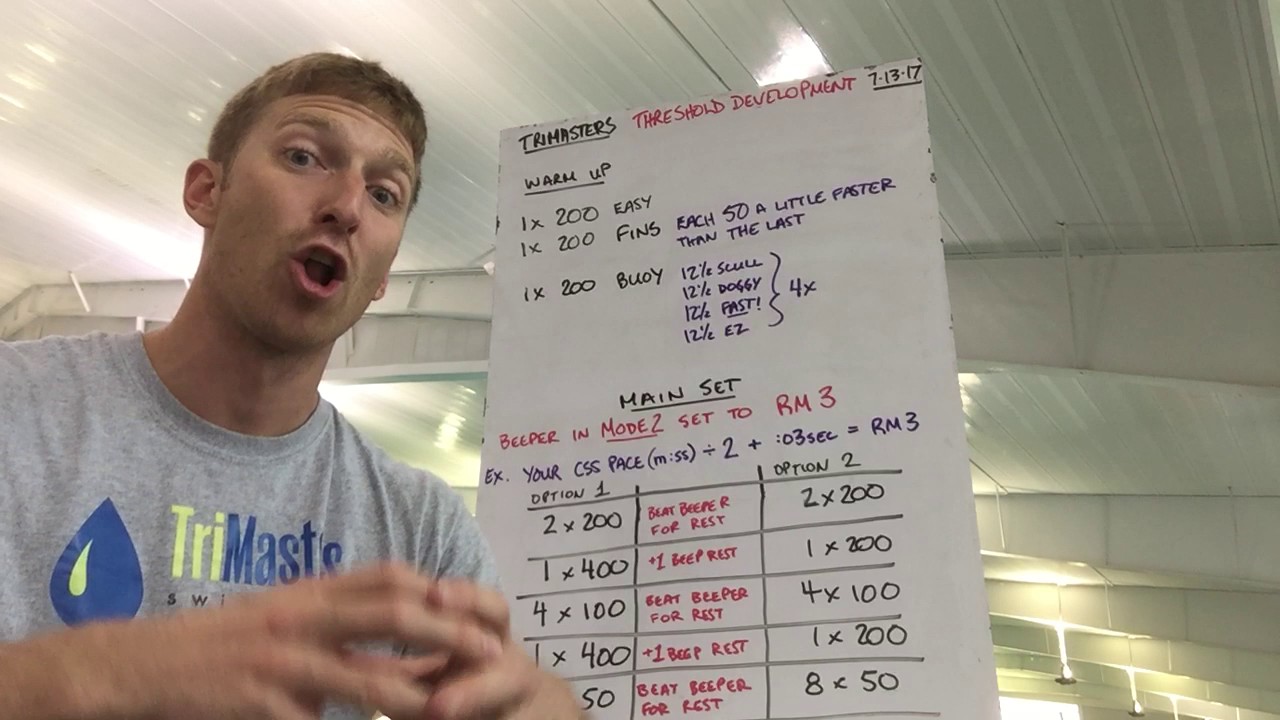 TRIMASTERS THRESHOLD DEVELOPMENT 7-13-17
WARM UP
1x 200 EASY
1x 200 FINS EACH 50 A LITTLE FASTER
THAN THE LAST
1x 200 BUOY 12½ SCULL
12½ DOGGY
12½ FAST!
12½ EZ
4x
MAIN SET
BEEPER IN MODE2 SET TO RM3
EX. YOUR CSS PACE (m:ss) ÷ 2 + :03SEC = RM3
OPTION 1 OPTION 2
2 x 200 BEAT BEEPER FOR REST 2 x 200
1 x 400 +1 BEEP REST 1 x 200
4 x 100 BEAT BEEPER FOR REST 4 x 100
1 x 400 +1 BEEP REST 1 x 200
50 BEAT BEEPER FOR REST 8 x 50